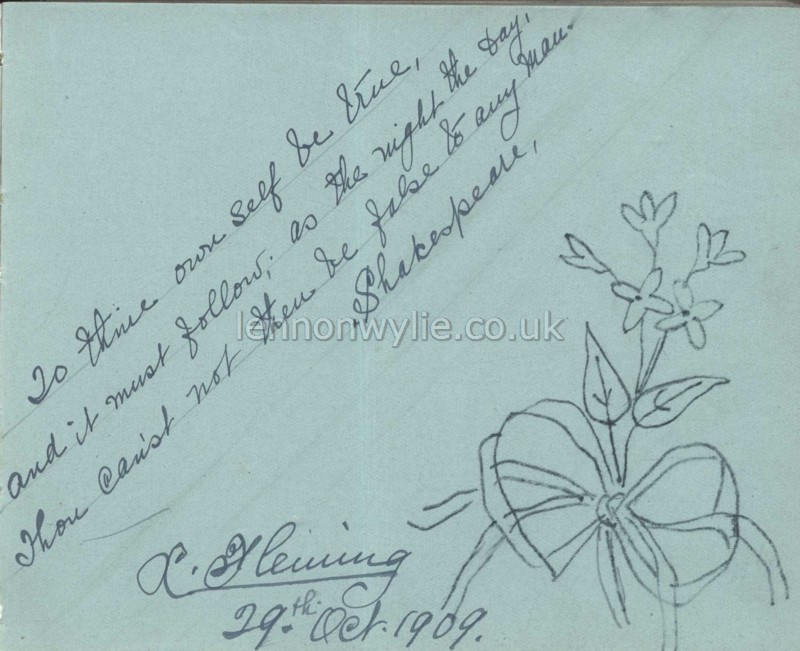 To thine own self be true,
and it must follow, as the night the Day,
Thou can'st not then be false to any man.
Shakespeare,
lennonwylie.co.uk
L. Fleming
29th Oct. 1909.